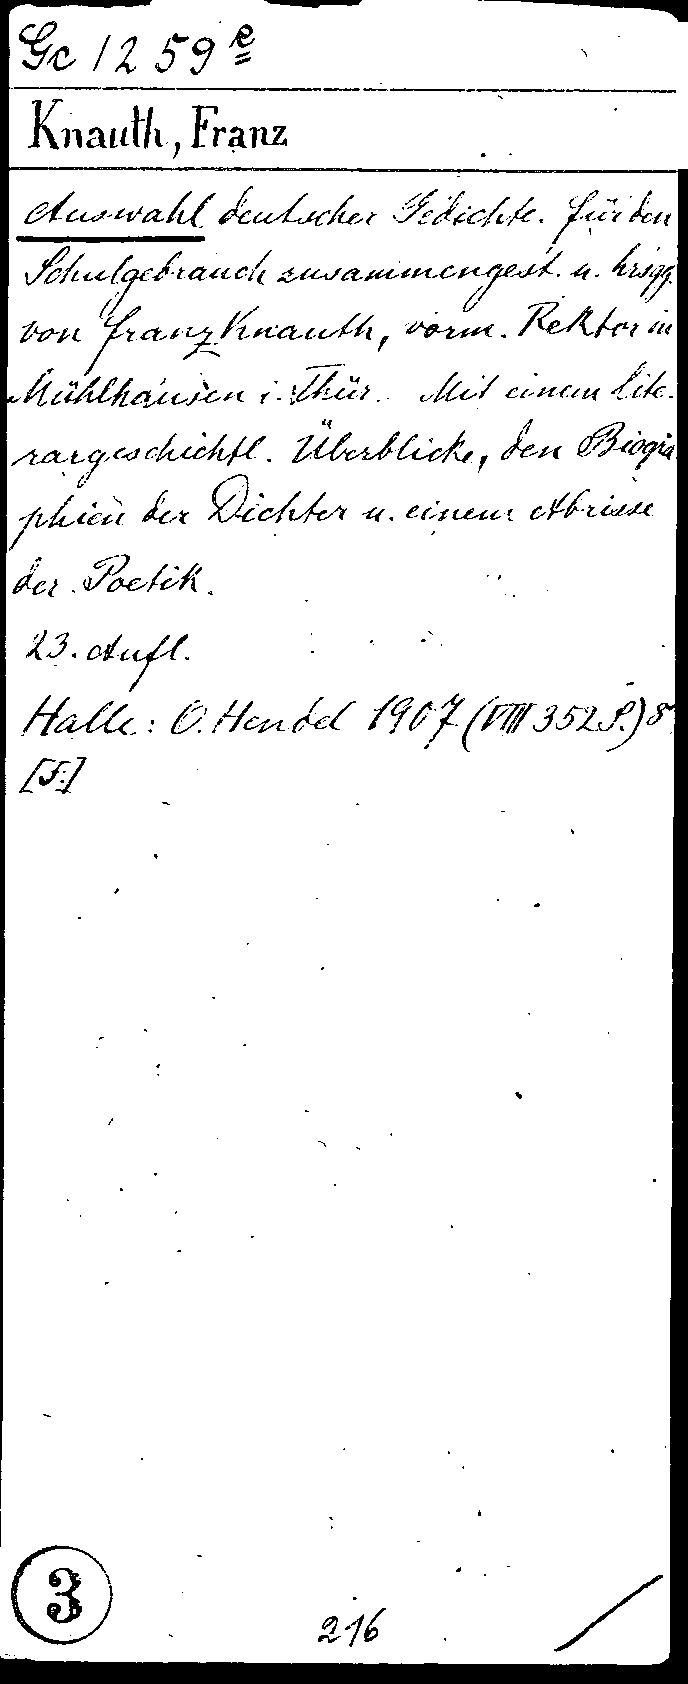 Gc 1259 e
Knauth, Franz
Auswahl deutscher Gedichte. Für den
Schulgebrauch zusammengest. u. hrsgg.
von Franz Knauth, vorm. Rektor in
Mühlhausen i. Thür. Mit einem lite-
rargeschichtl. Überblicke, den Biogra-
phien der Dichter u. einem Abrisse
der Poetik.
23. Aufl.
Halle: O. Hendel 1907 (VIII 352 S.) 8°
[F.]
3
216